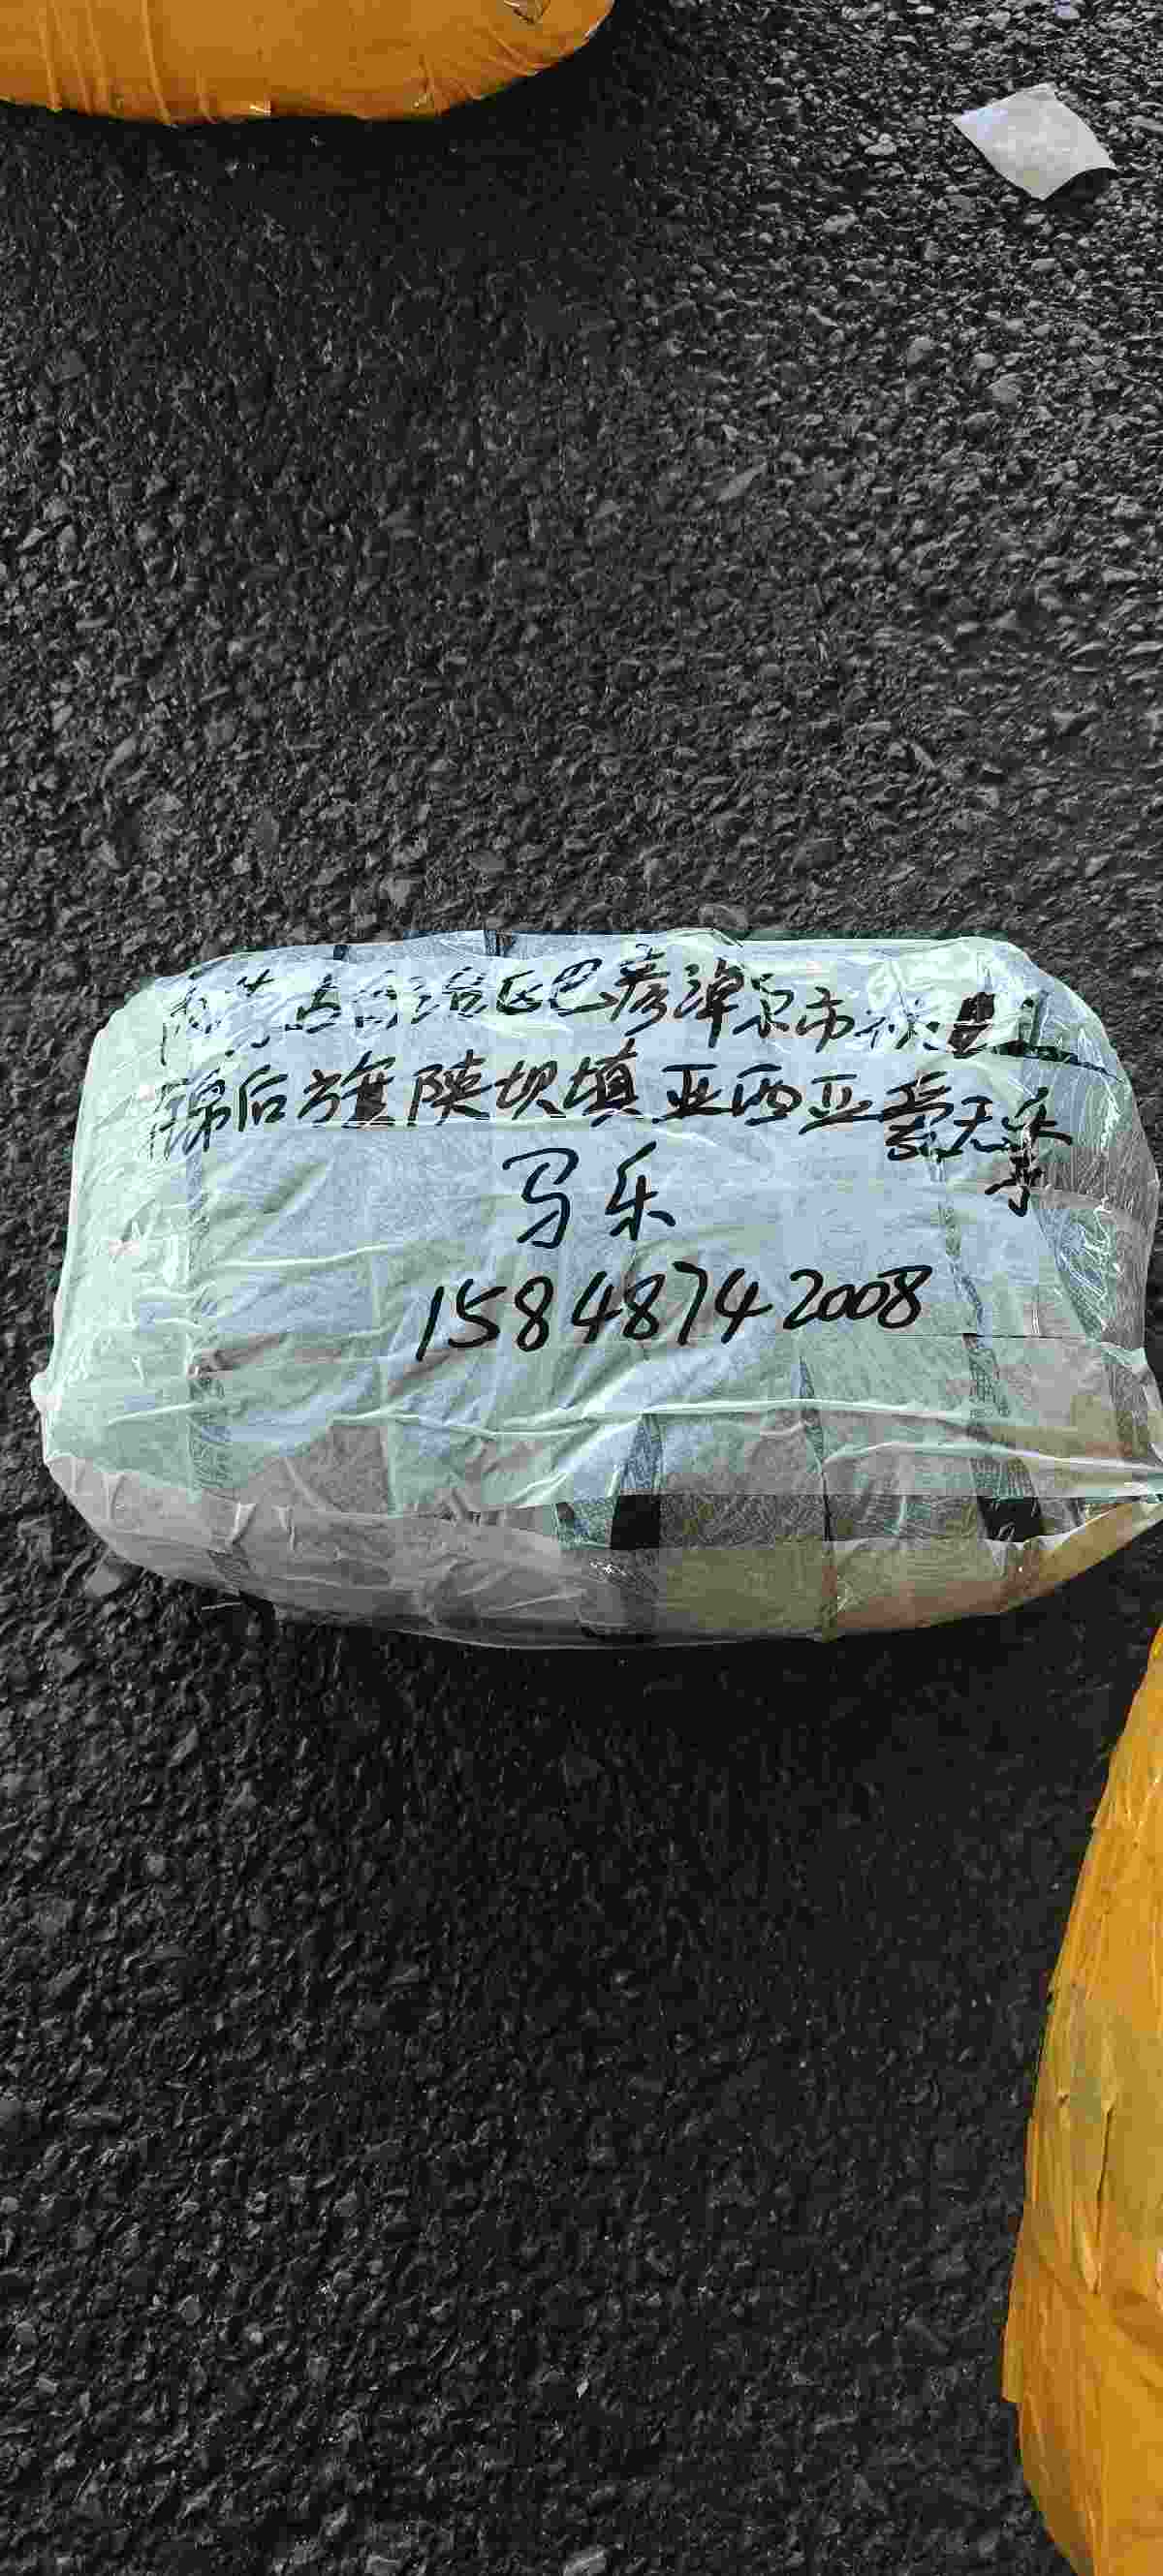 内蒙古自治区巴彦淖尔市杭
锦后旗陕坝填亚西亚
马乐
15848742008